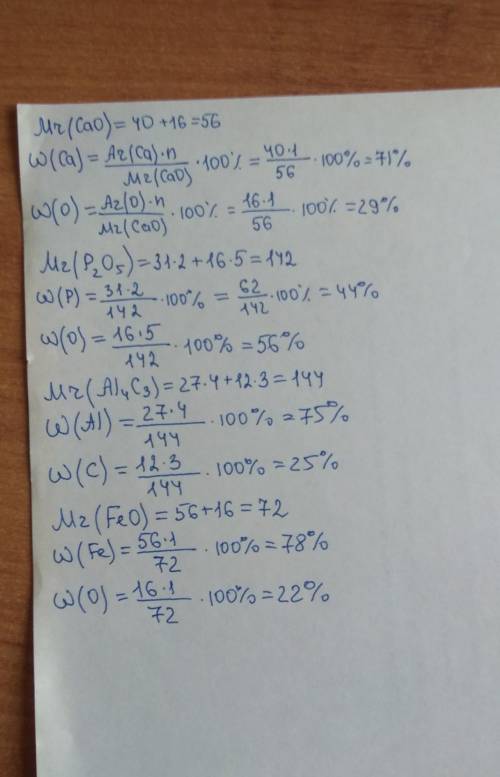 Mr(CaO)=40+16=56
ω(Ca)=Ar(Ca)·n/Mr(CaO)·100%=40·1/56·100%=71%
ω(O)=Ar(O)·n/Mr(CaO)·100%=16·1/56·100%=29%
Mr(P₂O₅)=31·2+16·5=142
ω(P)=31·2/142·100%=62/142·100%=44%
ω(O)=16·5/142·100%=56%
Mr(Al₄C₃)=27·4+12·3=144
ω(Al)=27·4/144·100%=75%
ω(C)=12·3/144·100%=25%
Mr(FeO)=56+16=72
ω(Fe)=56·1/72·100%=78%
ω(O)=16·1/72·100%=22%